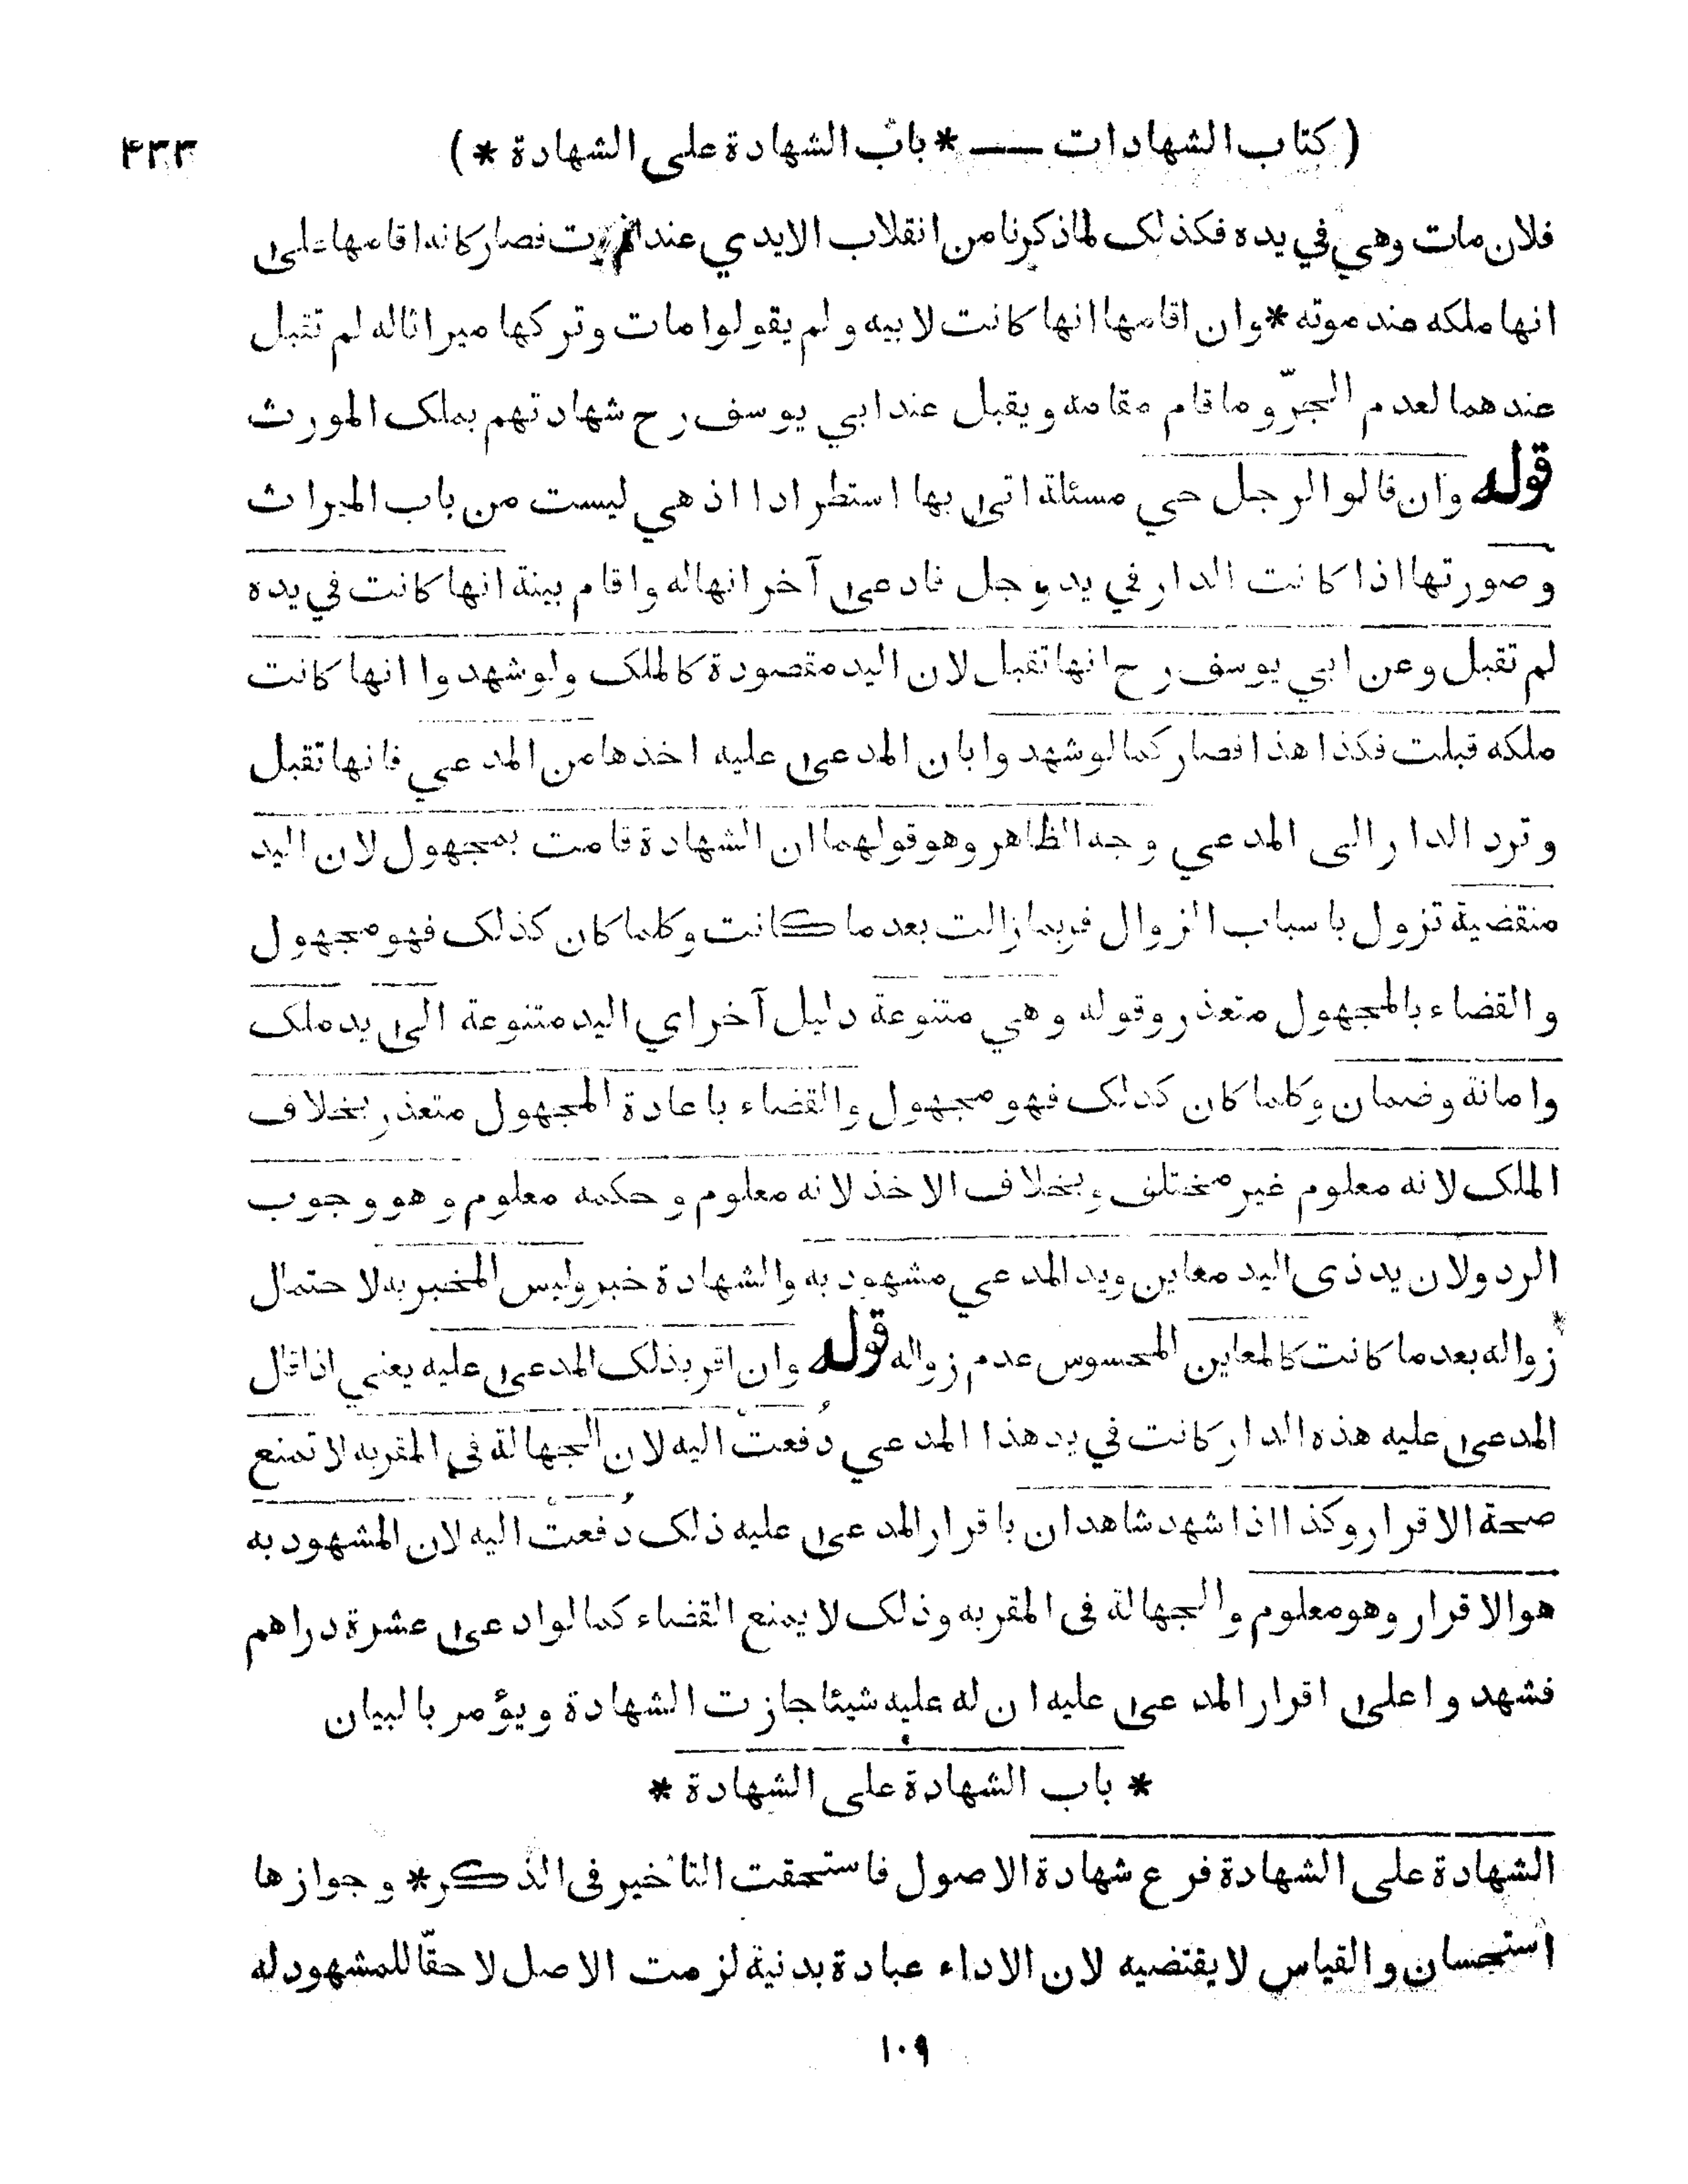 ( كتاب الشهادات — * باب الشهادة على الشهادة * ) ۴۳۳
فلان مات وهي في يده فكذلك لما ذكرنا من انقلاب الايدي عند الموت فصار كانه اقامها على
انها ملكه عند موته * وان اقامها انها كانت لابيه ولم يقولوا مات وتركها ميراثا له لم تقبل
عندهما لعدم الجرّ وما قام مقامه ويقبل عند ابي يوسف رح شهادتهم بملك المورث
قوله وان قالوا لرجل حي مسئلة اتى بها استطرادا اذ هي ليست من باب الميراث
وصورتها اذا كانت الدار في يد رجل فادعى آخر انها له واقام بينة انها كانت في يده
لم تقبل وعن ابي يوسف رح انها تقبل لان اليد مقصودة كالملك ولو شهدوا انها كانت
ملكه قبلت فكذا هذا فصار كما لو شهدوا بان المدعى عليه اخذها من المدعي فانها تقبل
وترد الدار الى المدعي وجه الظاهر وهو قولهما ان الشهادة قامت بمجهول لان اليد
منقضية تزول باسباب الزوال فربما زالت بعد ما كانت وكلما كان كذلك فهو مجهول
والقضاء بالمجهول متعذر وقوله وهي متنوعة دليل آخر اي اليد متنوعة الى يد ملك
وامانة وضمان وكلما كان كذلك فهو مجهول والقضاء باعادة المجهول متعذر بخلاف
الملك لانه معلوم غير مختلف وبخلاف الاخذ لانه معلوم وحكمه معلوم وهو وجوب
الرد ولان يد ذى اليد معاين ويد المدعي مشهود به والشهادة خبر وليس المخبر به لاحتمال
زواله بعد ما كانت كالمعاين المحسوس عدم زواله قوله وان اقر بذلك المدعى عليه يعني اذا قال
المدعى عليه هذه الدار كانت في يد هذا المدعي دُفعتْ اليه لان الجهالة في المقر به لا تمنع
صحة الاقرار وكذا اذا شهد شاهدان باقرار المدعى عليه ذلك دُفعتْ اليه لان المشهود به
هو الاقرار وهو معلوم والجهالة فى المقر به وذلك لا يمنع القضاء كما لو ادعى عشرة دراهم
فشهدوا على اقرار المدعى عليه ان له عليه شيئا جازت الشهادة ويؤمر بالبيان
* باب الشهادة على الشهادة *
الشهادة على الشهادة فرع شهادة الاصول فاستحقت التأخير فى الذكر * وجوازها
استحسان والقياس لا يقتضيه لان الاداء عبادة بدنية لزمت الاصل لا حقّا للمشهود له
۱۰۹